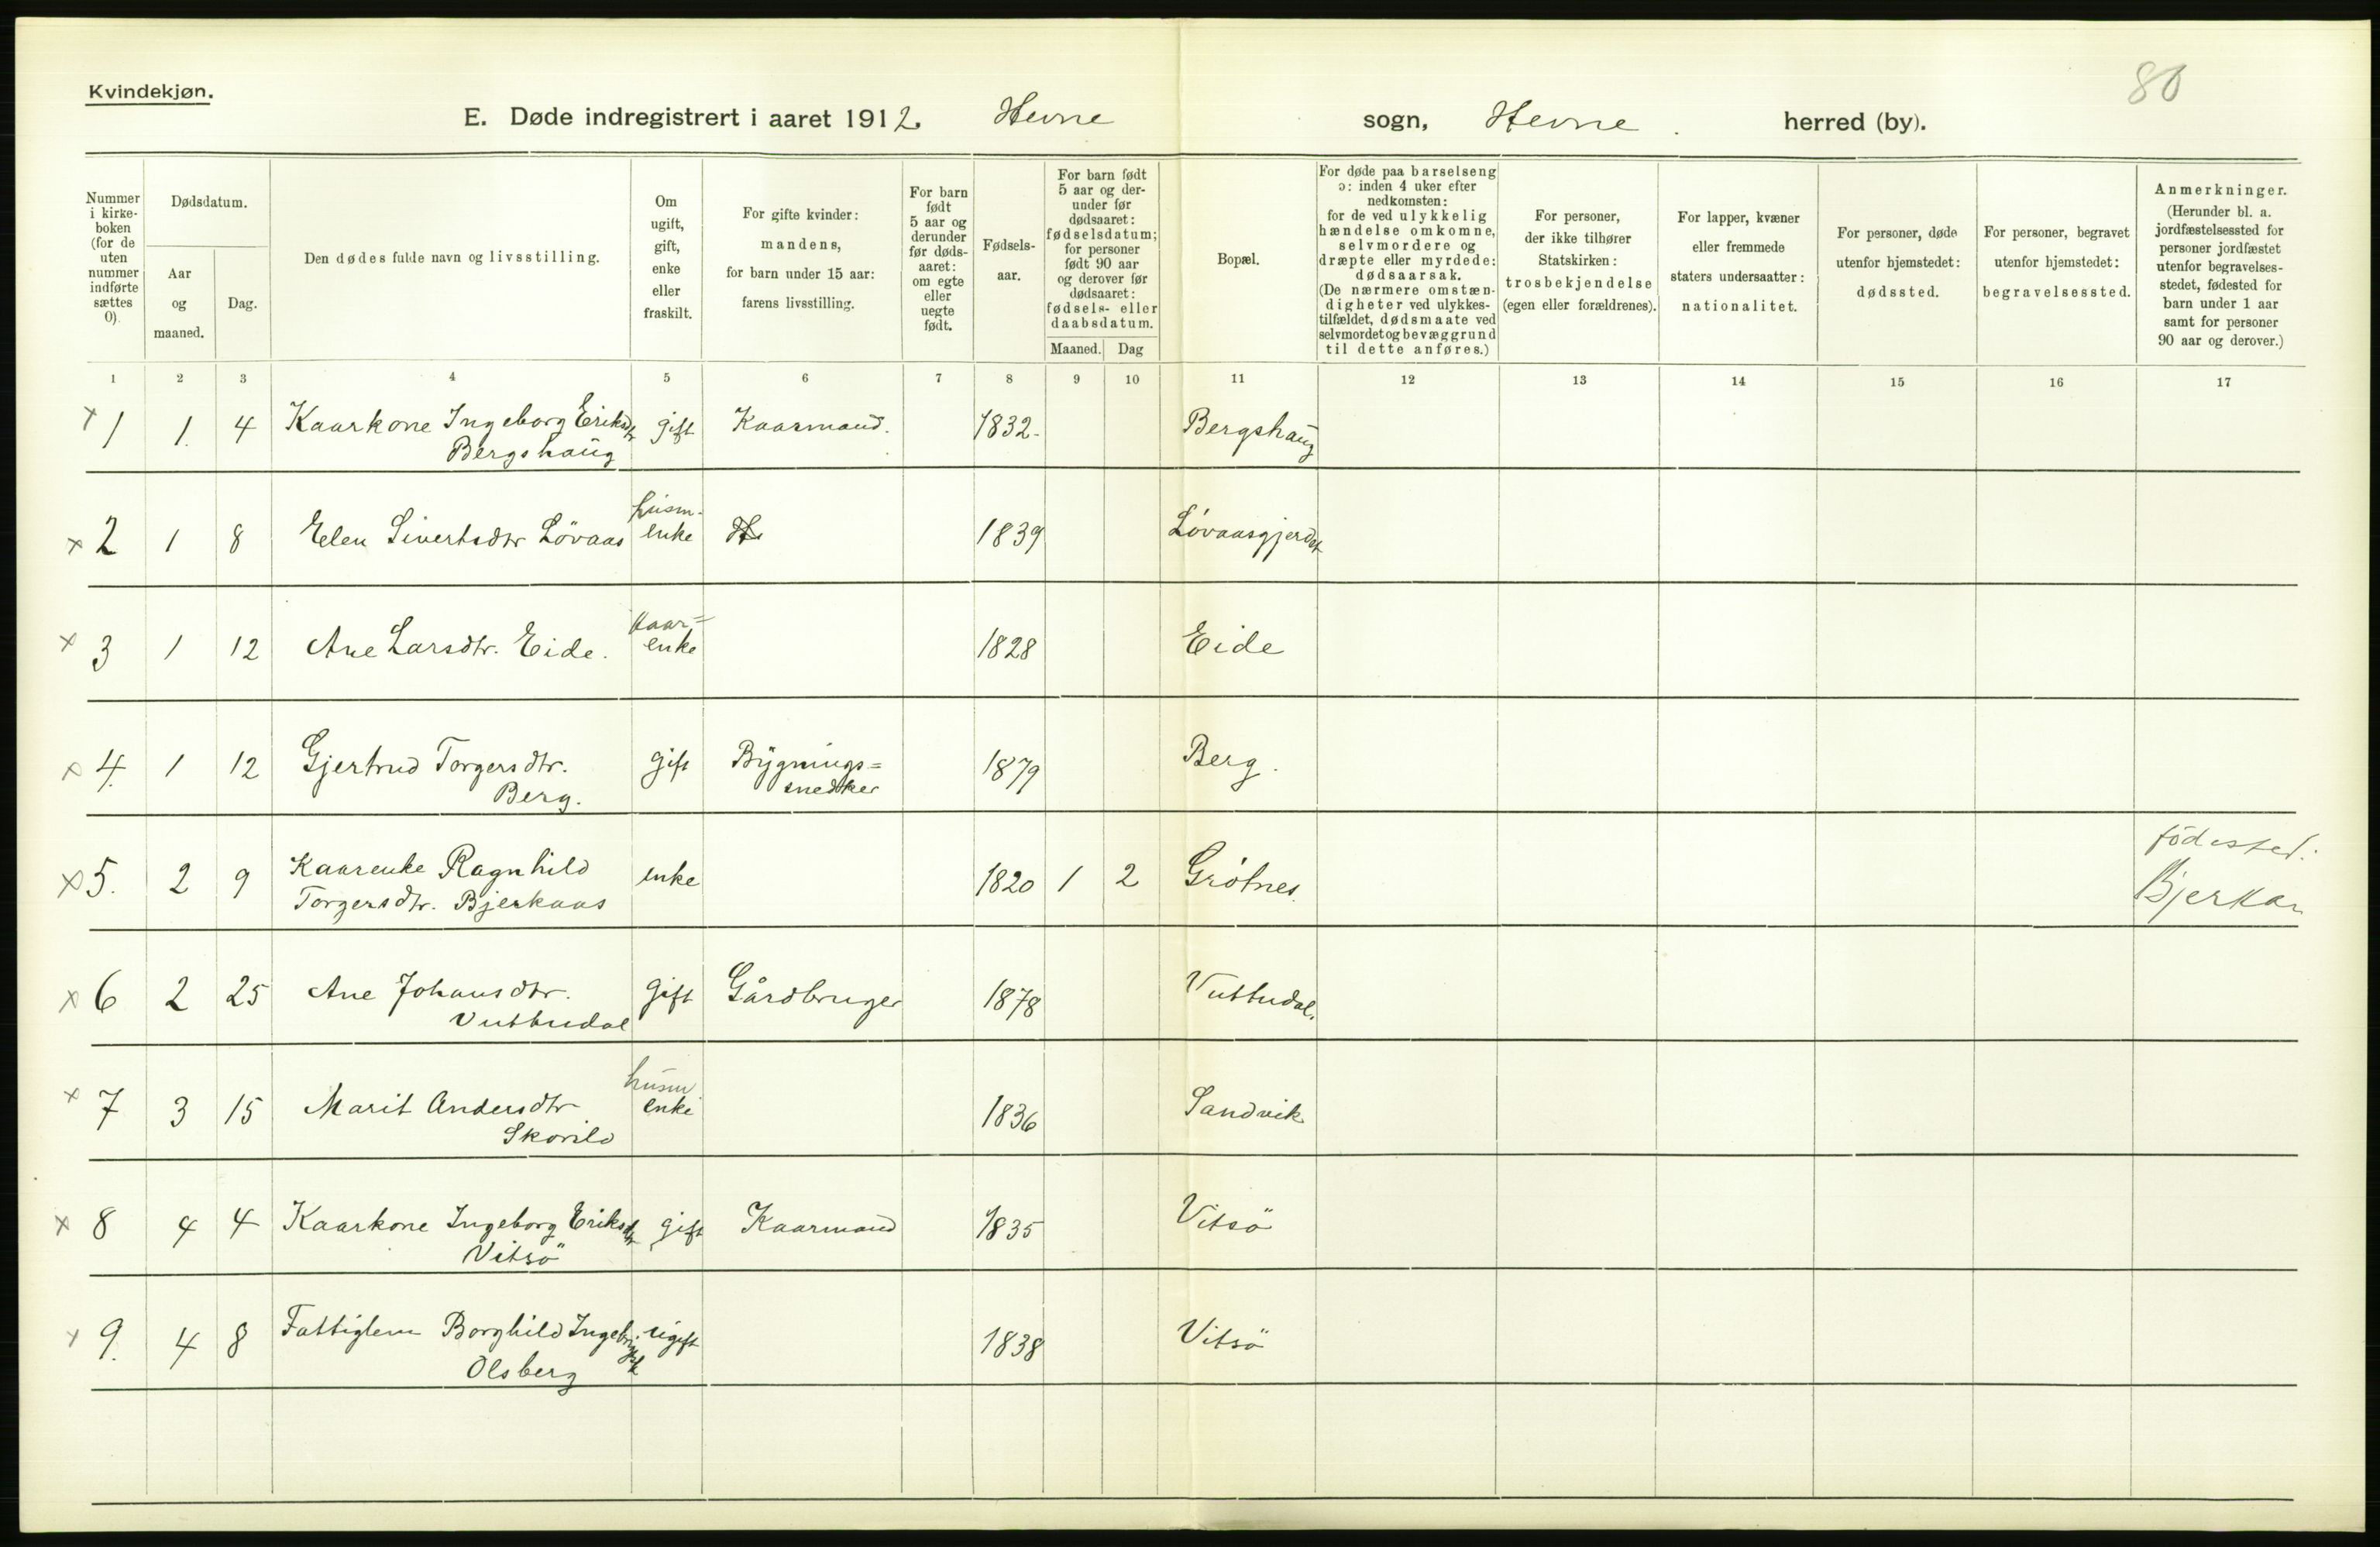 80
Kvindekjøn.
E. Døde indregistrert i aaret 1912. Hevne sogn, Hevne herred (by).
Nummer i kirke-boken (for de uten nummer indførte sættes 0).
Dødsdatum.
Aar og maaned.
Dag.
Den dødes fulde navn og livsstilling.
Om ugift, gift, enke eller fraskilt.
For gifte kvinder: mandens, for barn under 15 aar: farens livsstilling.
For barn født 5 aar og derunder før døds-aaret: om egte eller uegte født.
Fødsels-aar.
For barn født 5 aar og der-under før dødsaaret: fødselsdatum; for personer født 90 aar og derover før dødsaaret: fødsels- eller daabsdatum.
Maaned. Dag
Bopæl.
For døde paa barselseng ɔ: inden 4 uker efter nedkomsten: for de ved ulykkelig hændelse omkomne, selvmordere og dræpte eller myrdede: dødsaarsak. (De nærmere omstæn-digheter ved ulykkes-tilfældet, dødsmaate ved selvmordet og bevæggrund til dette anføres.)
For personer, der ikke tilhører Statskirken: trosbekjendelse (egen eller forældrenes).
For lapper, kvæner eller fremmede staters undersaatter: nationalitet.
For personer, døde utenfor hjemstedet: dødssted.
For personer, begravet utenfor hjemstedet: begravelsessted.
Anmerkninger. (Herunder bl. a. jordfæstelsessted for personer jordfæstet utenfor begravelses-stedet, fødested for barn under 1 aar samt for personer 90 aar og derover.)
1 2 3 4 5 6 7 8 9 10 11 12 13 14 15 16 17
x 1 1. 4 Kaarkone Ingeborg Eriksdtr gift Kaarmand. 1832. Bergshaug
Bergshaug
husm.
x 2 1 8 Elen Sivertsdtr Lövaas enke 1839 Lövaasgjerdet
Kaar=
x 3 1 12 Ane Larsdtr. Eide. enke 1828 Eide
x 4. 1 12 Gjertrud Torgersdtr. gift Bygnings= 1879 Berg.
Berg. snedker
födested:
x 5. 2 9 Kaarenke Ragnhild enke 1820 1 2 Grötnes.
Torgersdtr. Bjerkaas
x 6 2 25 Ane Johansdtr. gift Gårdbruger 1878 Vuttudal.
Vuttudal
husm
x 7 3 15 Marit Andersdtr enke 1836 Sandvik
Skorild
x 8 4 4 Kaarkone Ingeborg Eriksdtr gift Kaarmand 1835 Vitsö
Vitsö
x 9. 4 8 Fattiglem Borghild Ingebrigtsdtr ugift 1838 Vitsö
Olsberg